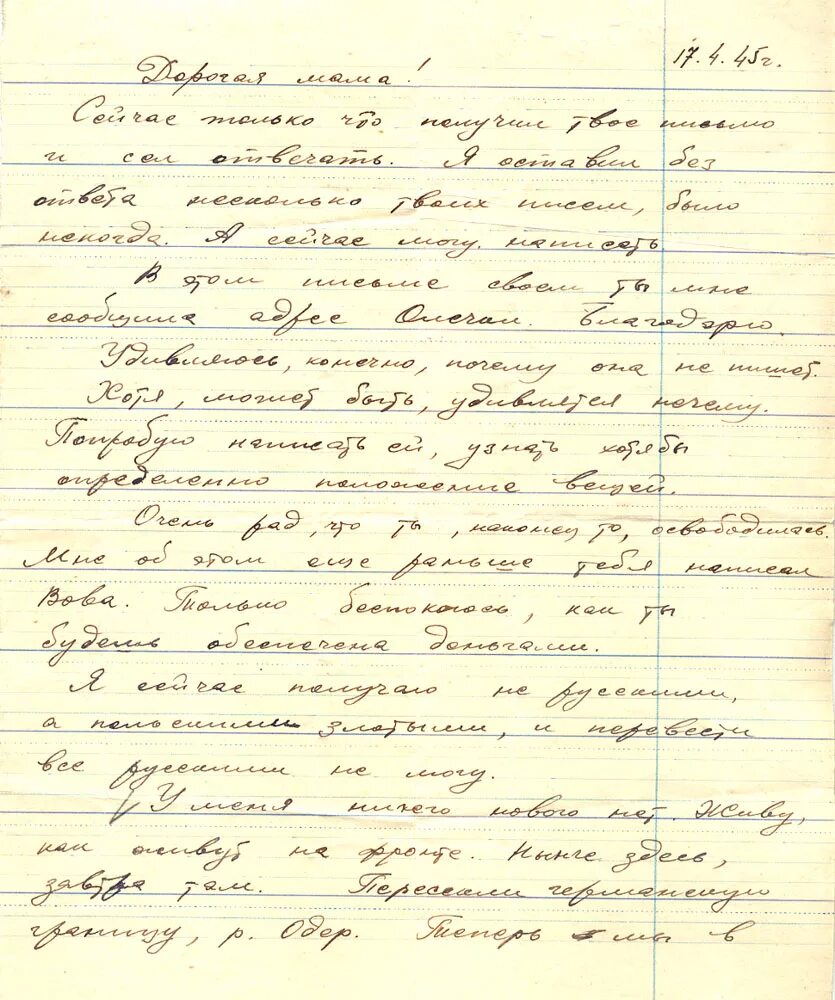 17. 4. 45г.
Дорогая мама!
Сейчас только что получил твое письмо
и сел отвечать. Я оставил без
ответа несколько твоих писем, было
некогда. А сейчас могу написать
В этом письме своем ты мне
сообщила адрес Олечки. Благодарю.
Удивляюсь, конечно, почему она не пишет.
Хотя, может быть, удивлятся нечему.
Попробую написать ей, узнать хотя бы
определенно положение вещей.
Очень рад, что ты, наконец то, освободилась.
Мне об этом еще раньше тебя написал
Вова. Только беспокоюсь, как ты
будешь обеспечена деньгами.
Я сейчас получаю не русскими,
а польскими злотыми, и перевести
все русскими не могу.
У меня ничего нового нет. Живу,
как живут на фронте. Нынче здесь,
завтра там. Пересекли германскую
границу, р. Одер. Теперь мы в